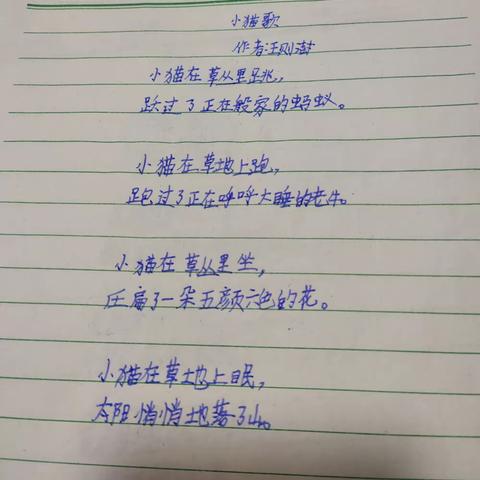 小猫歌
作者:汪则澍
小猫在草丛里跳,
跃过了正在般家的蚂蚁。
小猫在草地上跑,
跑过了正在呼呼大睡的老牛。
小猫在草丛里坐,
压扁了一朵五颜六色的花。
小猫在草地上眠,
太阳悄悄地落了山。